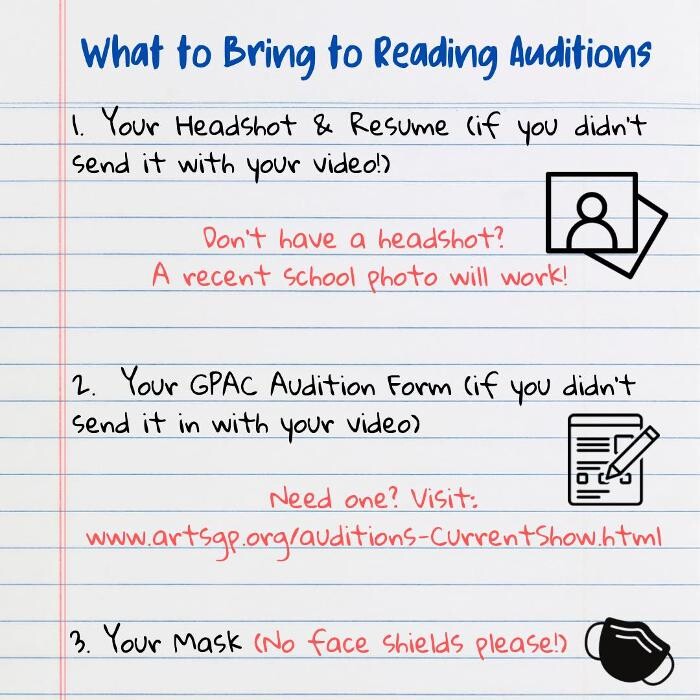 What to Bring to Reading Auditions
1. Your Headshot & Resume (if you didn't
send it with your video!)
Don't have a headshot?
A recent school photo will work!
2. Your GPAC Audition Form (if you didn't
send it in with your video)
Need one? Visit:
www.artsgp.org/auditions-CurrentShow.html
3. Your Mask (No face shields please!)